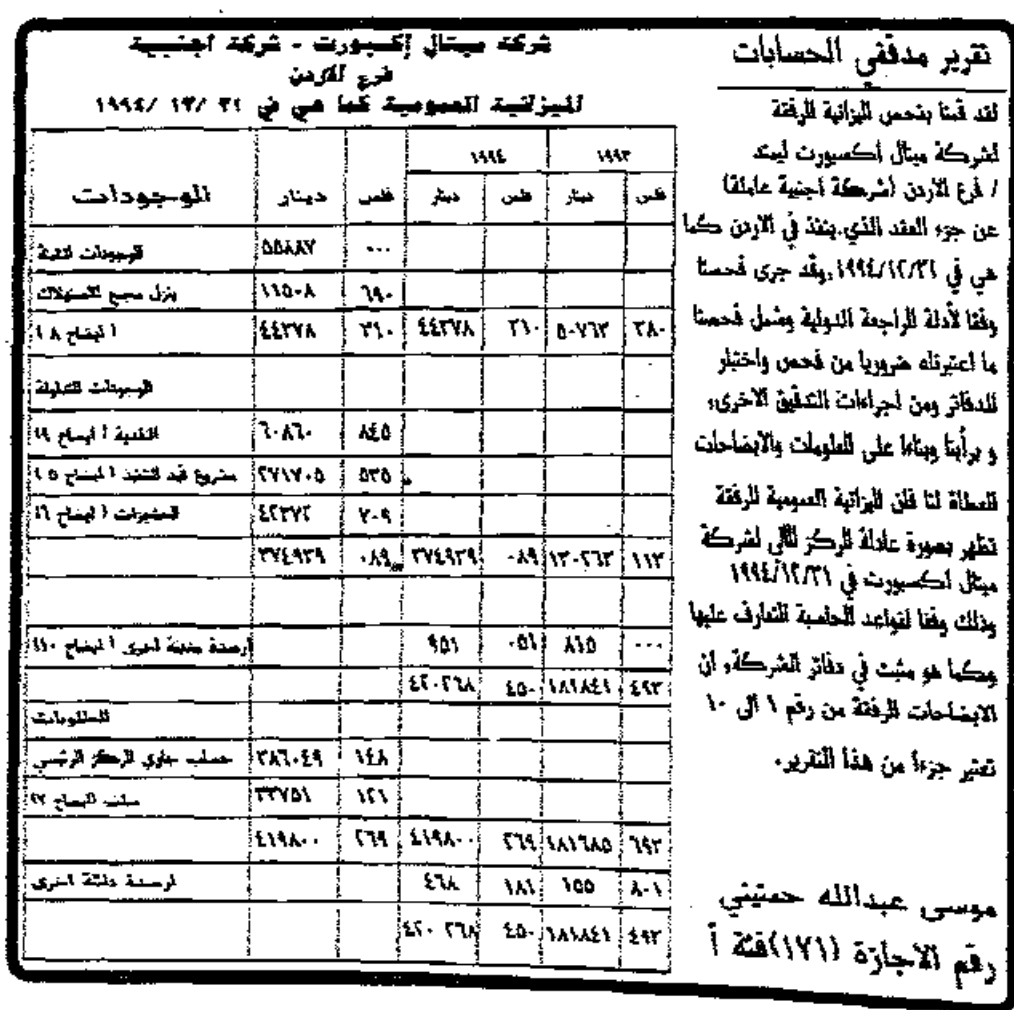 تقرير مدققي الحسابات
لقد قمنا بفحص الميزانية المرفقة
لشركة ميتال اكسبورت ليمتد
/ فرع الاردن (شركة اجنبية عاملة)
عن جزء العقد الذي ينفذ في الاردن كما
هي في ١٩٩٤/١٢/٣١ وقد جرى فحصنا
وفقا لأدلة المراجعة الدولية وشمل فحصنا
ما اعتبرناه ضروريا من فحص واختبار
للدفاتر ومن اجراءات التدقيق الاخرى،
و برأينا وبناءا على المعلومات والايضاحات
المعطاة لنا فان الميزانية العمومية المرفقة
تظهر بصورة عادلة المركز المالي لشركة
ميتال اكسبورت في ١٩٩٤/١٢/٣١
وذلك وفقا لقواعد المحاسبة المتعارف عليها
وكما هو مثبت في دفاتر الشركة، ان
الايضاحات المرفقة من رقم ١ الى ١٠
تعتبر جزءا من هذا التقرير.
موسى عبدالله حمتيني
رقم الاجازة (١٧١) فئة أ
شركة ميتال إكسبورت - شركة اجنبية
فرع الاردن
الميزانية العمومية كما هي في ٣١ /١٢ /١٩٩٤
١٩٩٣ ١٩٩٤
الموجودات دينار فلس دينار فلس دينار فلس
الموجودات الثابتة ٥٥٨٨٧ ٠٠٠
ينزل مجمع الاستهلاك ١١٥٠٨ ٦٩٠
( ايضاح ٨ ) ٤٤٣٧٨ ٣١٠ ٤٤٣٧٨ ٣١٠ ٥٠٧٦٣ ٣٨٠
الموجودات المتداولة
النقدية ( ايضاح ٩) ٦٠٨٦٠ ٨٤٥
مشروع قيد التنفيذ ( ايضاح ٥ ) ٢٧١٧٠٥ ٥٣٥
( ايضاح ٦) ٤٢٣٧٢ ٧٠٩
٣٧٤٩٣٩ ٠٨٩ ٣٧٤٩٣٩ ٠٨٩ ١٣٠٢٦٣ ١١٣
ارصدة مدينة اخرى ( ايضاح ١٠) ٩٥١ ٠٥١ ٨١٥ ٠٠٠
٤٢٠٢٦٨ ٤٥٠ ١٨١٨٤١ ٤٩٣
المطلوبات
حساب جاري المركز الرئيسي ٣٨٦٠٤٩ ١٤٨
٣٣٧٥١ ١٢١
٤١٩٨٠٠ ٢٦٩ ٤١٩٨٠٠ ٢٦٩ ١٨١٦٨٥ ٦٩٣
ارصدة دائنة اخرى ٤٦٨ ١٨١ ١٥٥ ٨٠١
٤٢٠٢٦٨ ٤٥٠ ١٨١٨٤١ ٤٩٣